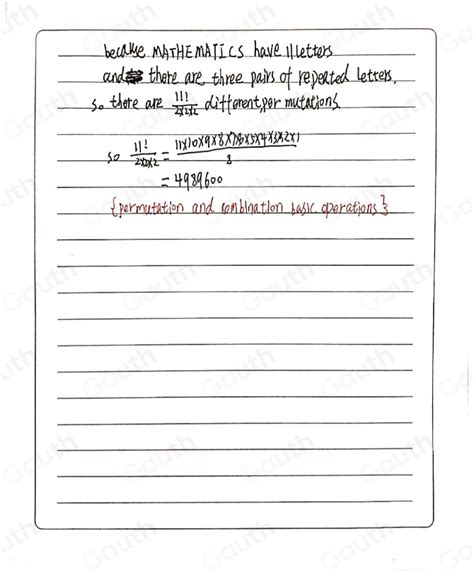 because MATHEMATICS have 11 letters
and there are three pairs of repeated letters.
so there are 11!/2x2x2 different permutations.
so 11!/2x2x2 = 11x10x9x8x7x6x5x4x3x2x1/8
= 4989600
{permutation and combination basic operations}
Gauth